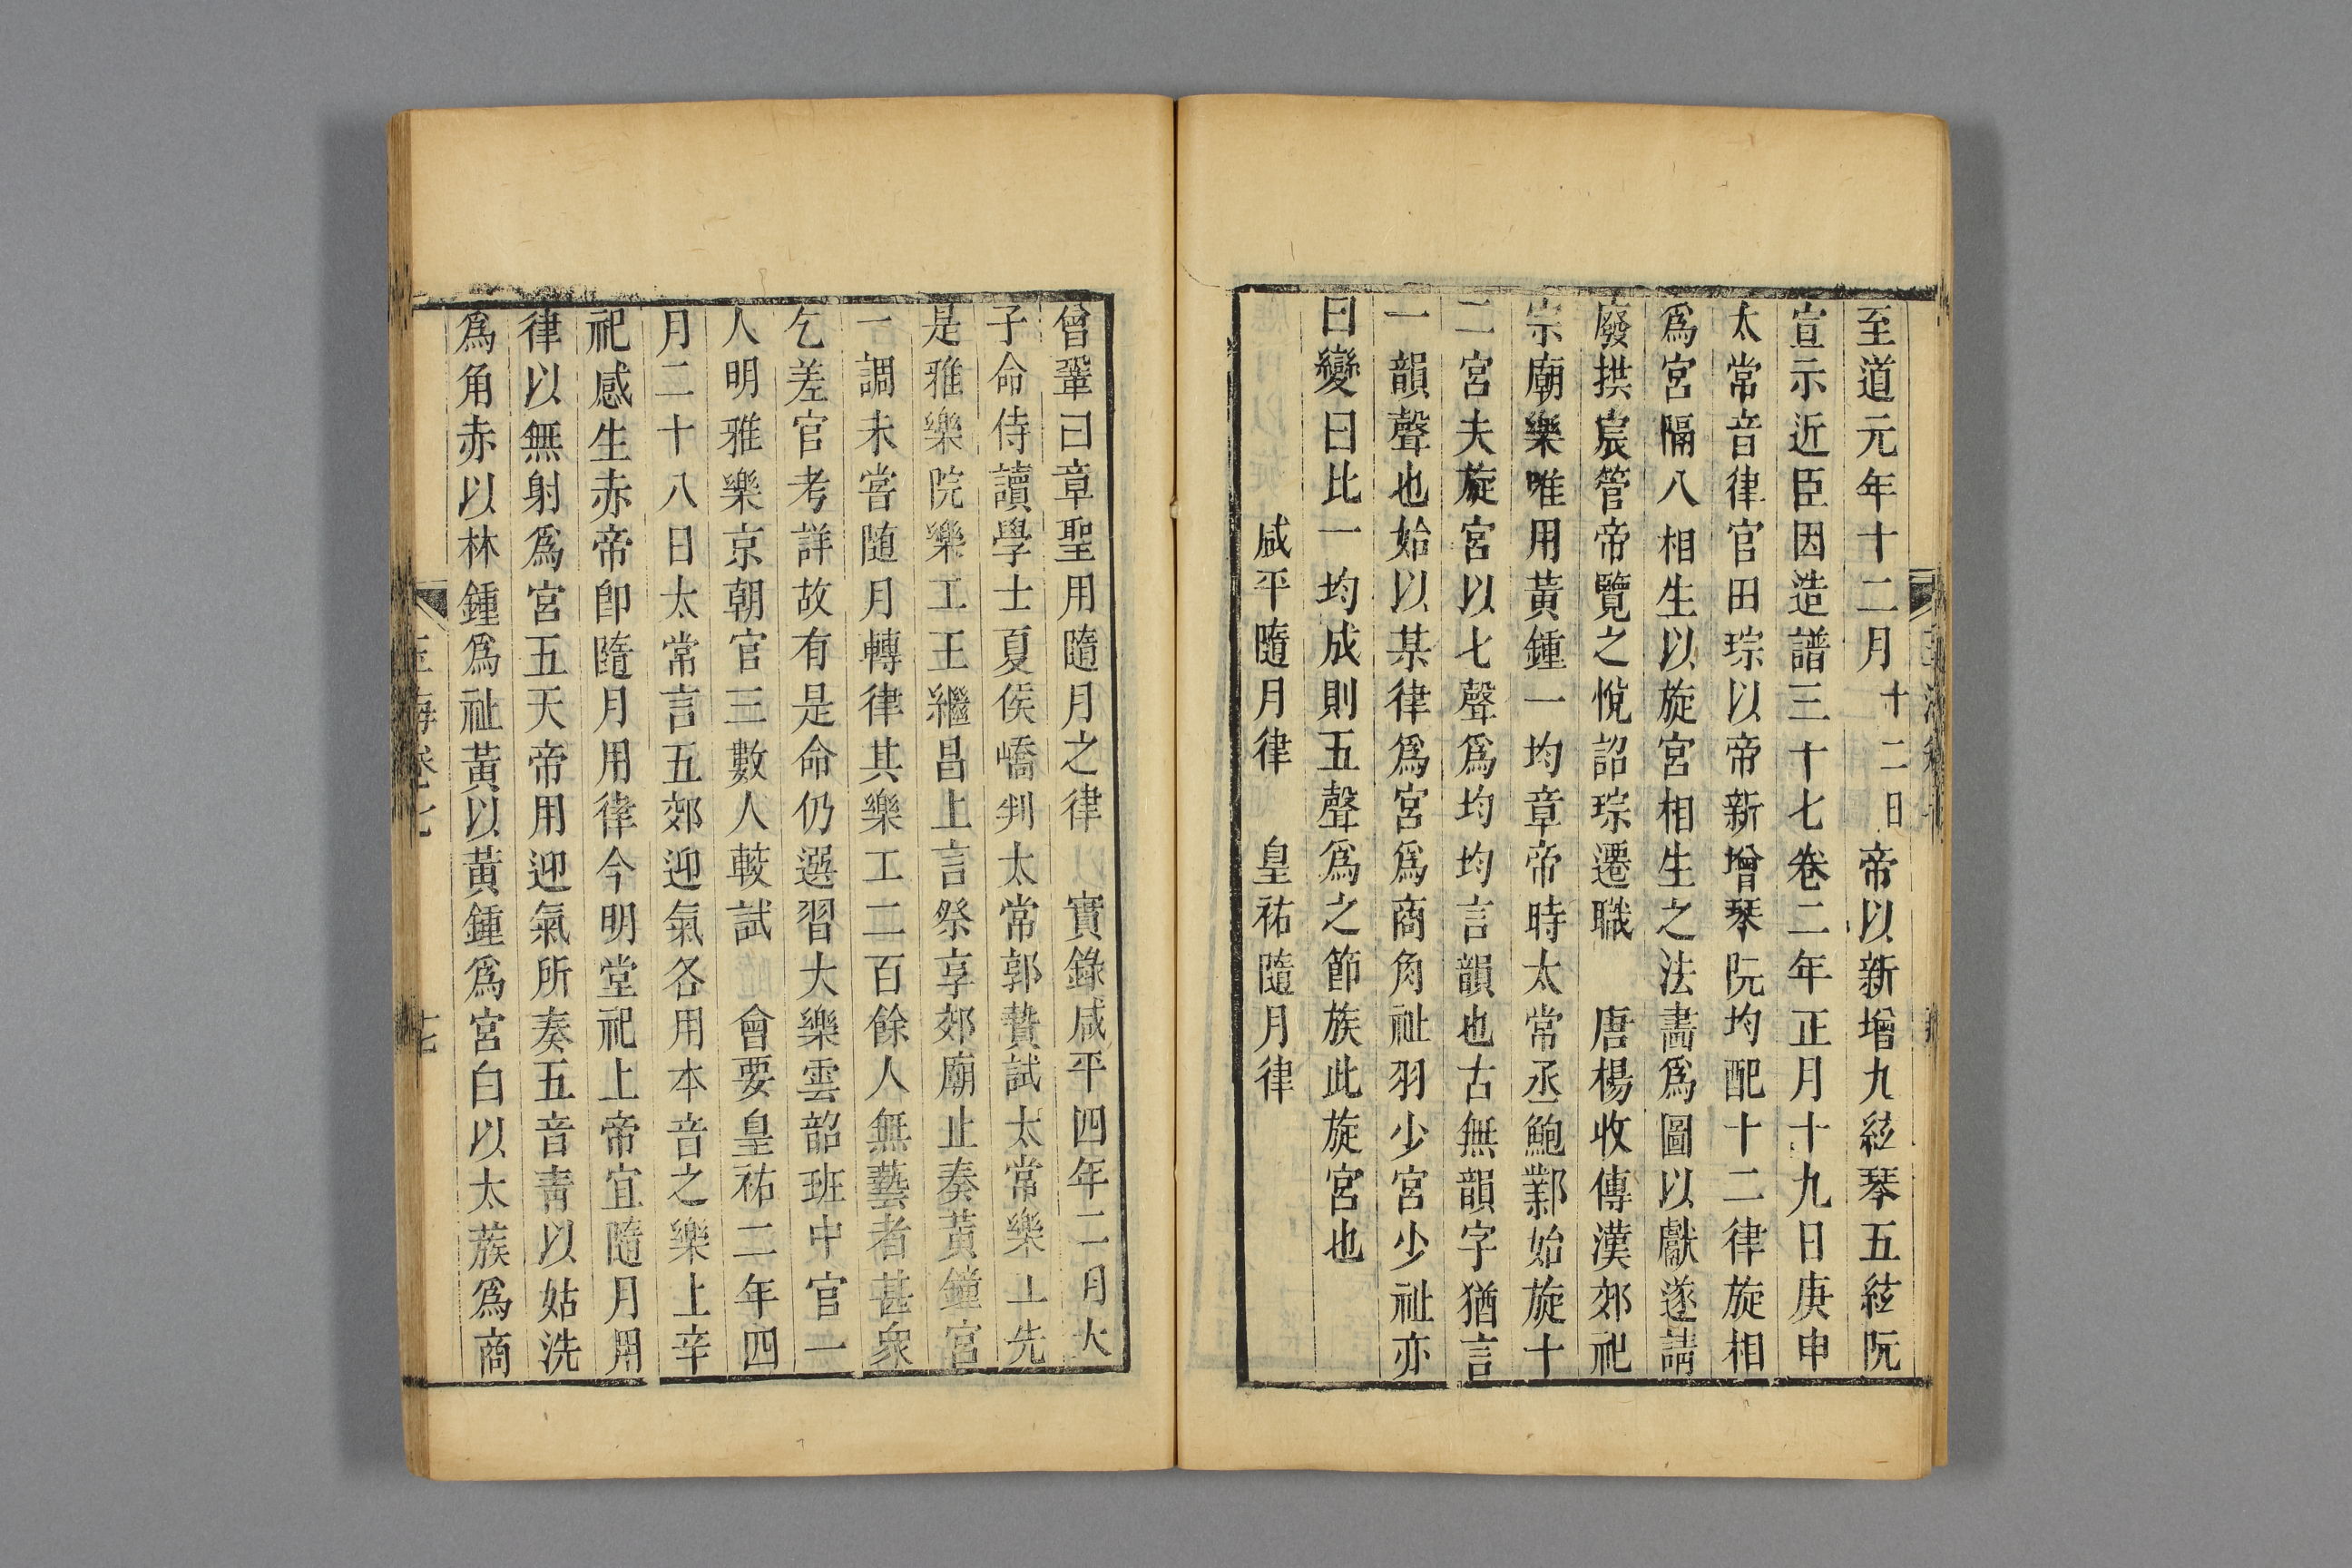 至道元年十二月十二日帝以新增九絃琴五絃阮
宣示近臣因造譜三十七卷二年正月十九日庚申
太常音律官田琮以帝新增琴阮均配十二律旋相
爲宮隔八相生以旋宮相生之法畵爲圖以獻遂請
廢拱宸管帝覽之悅詔琮遷職　唐楊收傳漢郊祀
宗廟樂唯用黃鍾一均章帝時太常丞鮑鄴始旋十
二宮夫旋宮以七聲爲均均言韻也古無韻字猶言
一韻聲也始以某律爲宮爲商角祉羽少宮少祉亦
曰變曰比一均成則五聲爲之節族此旋宮也
咸平隨月律　皇祐隨月律
曾鞏曰章聖用隨月之律　實錄咸平四年二月大
子命侍讀學士夏侯嶠判太常郭贄試太常樂工先
是雅樂院樂工王繼昌上言祭享郊廟止奏黃鐘宮
一調未嘗隨月轉律其樂工二百餘人無藝者甚衆
乞差官考詳故有是命仍選習大樂雲韶班中官一
人明雅樂京朝官三數人較試　會要皇祐二年四
月二十八日太常言五郊迎氣各用本音之樂上辛
祀感生赤帝卽隨月用律今明堂祀上帝宜隨月用
律以無射爲宮五天帝用迎氣所奏五音靑以姑洗
爲角赤以林鍾爲祉黃以黃鍾爲宮白以太蔟爲商
玉海卷七　十七